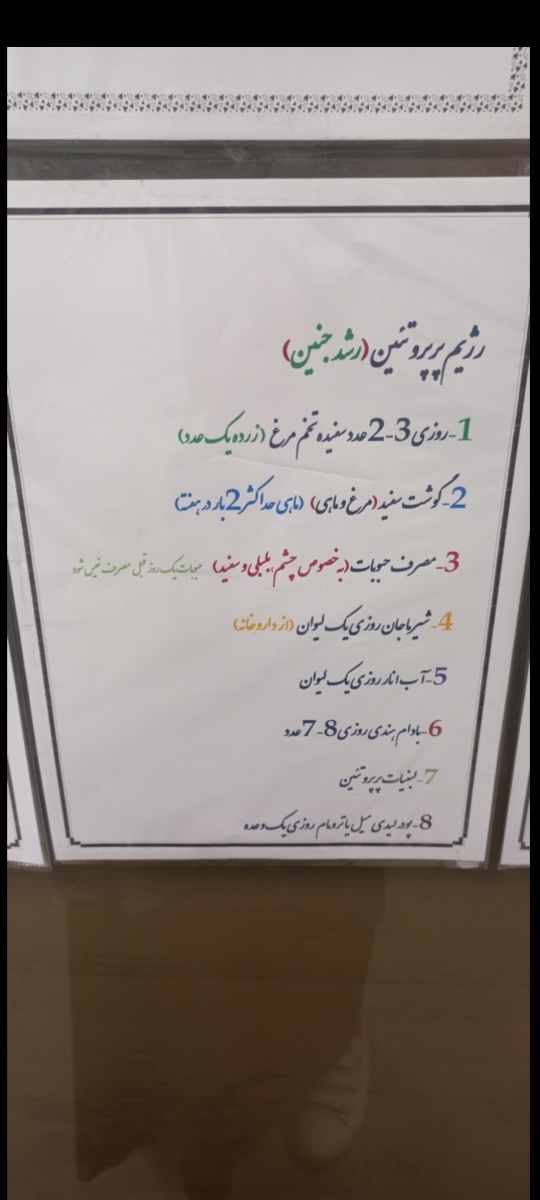 رژیم پرپروتئین (رشد جنین)
1-روزی 3-2 عدد سفیده تخم مرغ (زرده یک عدد)
2-گوشت سفید (مرغ و ماهی) (ماهی حداکثر 2 بار در هفته)
3-مصرف حبوبات (به خصوص چشم بلبلی و سفید) حبوبات یک روز قبل مصرف خیس شود
4-شیر باجان روزی یک لیوان (از داروخانه)
5-آب انار روزی یک لیوان
6-بادام هندی روزی 8-7 عدد
7-لبنیات پرپروتئین
8-پودر لیدی میل یا ترومام روزی یک وعده